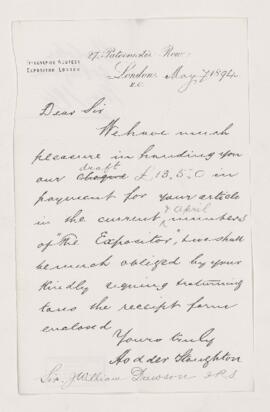 27, Paternoster Row,
TELEGRAPHIC ADDRESS
EXPOSITOR LONDON
London, May 7 1894
E.C.
Dear Sir
We have much
pleasure in handing you
draft
our cheque £13.5.0 in
payment for your article
& April
in the current numbers
of "The Expositor", & we shall
be much obliged by your
kindly signing & returning
to us the receipt form
enclosed
Yours truly
Hodder & Stoughton
Sir J William Dawson F.R.S